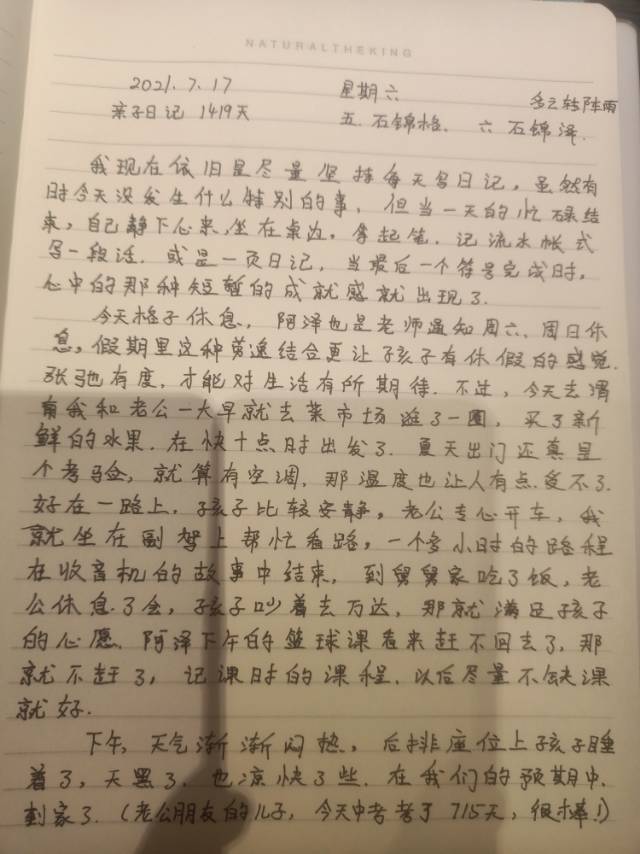 NATURALTHEKING
2021.7.17 星期六 多云转阵雨
亲子日记 1419天 五.石锦格. 六石锦泽.
我现在依旧是尽量坚持每天写日记,虽然有
时今天没发生什么特别的事,但当一天的忙碌结
束,自己静下心来,坐在桌边,拿起笔,记流水帐式
写一段话.或是一页日记,当最后一个符号完成时,
心中的那种短暂的成就感就出现了.
今天格子休息,阿泽也是老师通知周六.周日休
息,假期里这种劳逸结合更让孩子有休假的感觉.
张弛有度,才能对生活有所期待.不过,今天去渭
南我和老公一大早就去菜市场逛了一圈,买了新
鲜的水果.在快十点时出发了.夏天出门还真是
个考验,就算有空调,那温度也让人有点受不了.
好在一路上,孩子比较安静,老公专心开车,我
就坐在副驾上帮忙看路,一个多小时的路程
在收音机的故事中结束,到舅舅家吃了饭,老
公休息了会,孩子吵着去万达,那就满足孩子
的心愿.阿泽下午的篮球课看来赶不回去了,那
就不赶了,记课时的课程.以后尽量不缺课
就好.
下午,天气渐渐闷热,后排座位上孩子睡
着了,天黑了.也凉快了些.在我们的预期中.
到家了.(老公朋友的儿子,今天中考考了715天,很棒!)